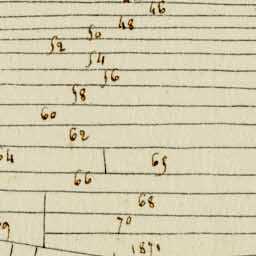 46
48
50
52
54
56
58
60
62
64 65
66
68
70
1871